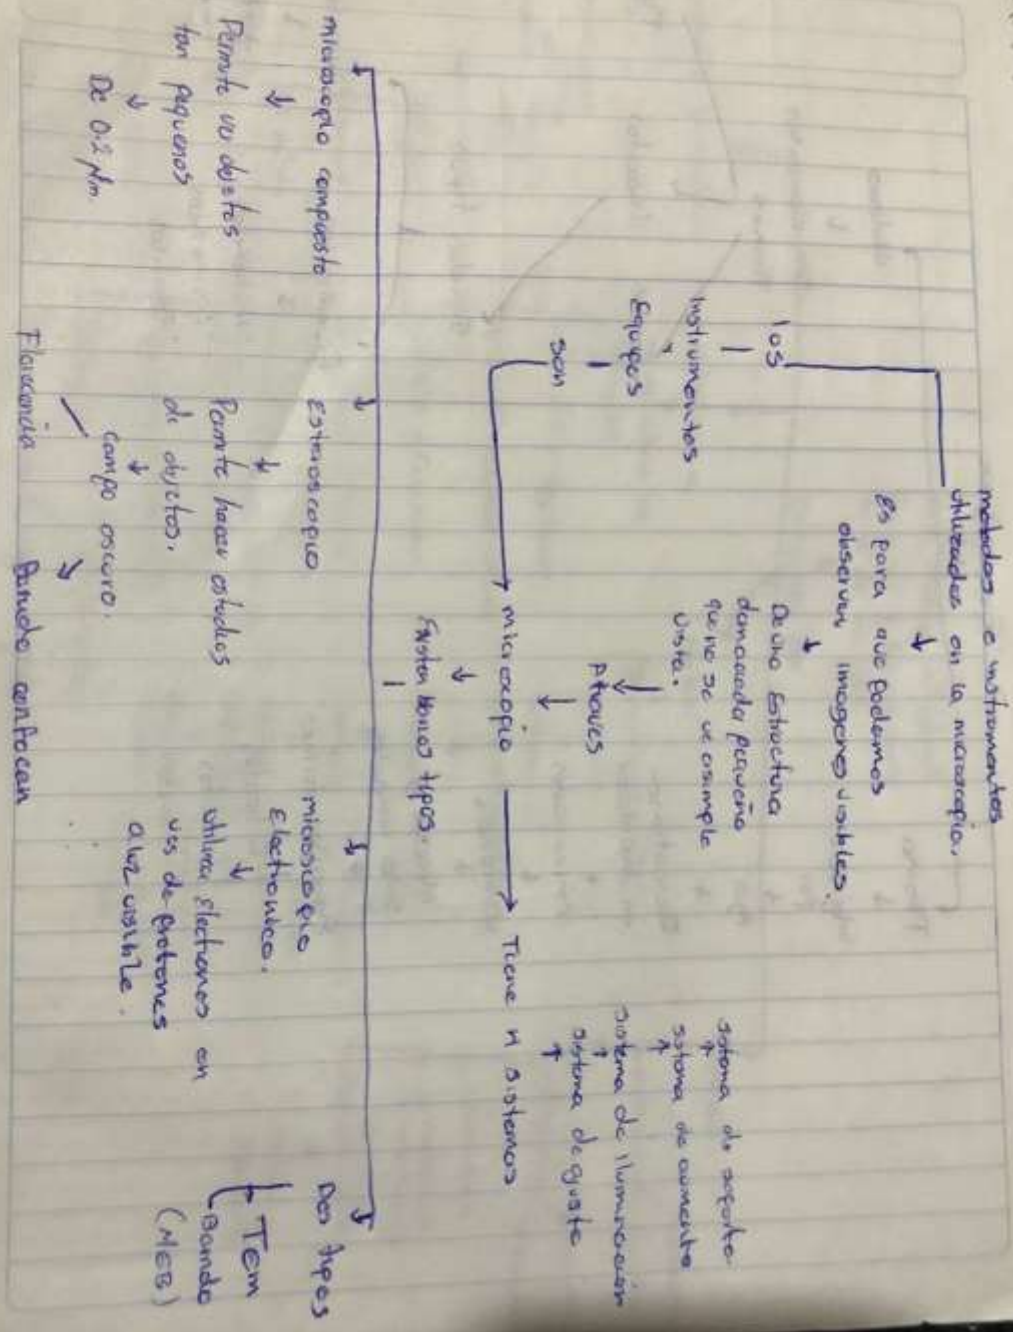 metodos e instrumentos
utilizados en la microscopia.
Es para que podamos
observar imagenes visibles.
De una Estructura
demasiada pequeña
que no se ve asimple
vista.
Atraves
los
Instrumentos
Equipos
son
microscopio
Tiene 4 sistemas
sistema de soporte
sistema de aumento
sistema de iluminación
sistema de ajuste
Existen barios tipos.
microscopio compuesto
Permite ver objetos
tan pequenos
De 0.2 Mm.
Esteroscopio
Permite hacer estudios
de objetos.
campo oscuro.
Florecencia
Barrido confocan
microscopio
Electronico.
utiliza electrones en
ves de protones
a luz visible.
Dos tipos
TEM
Barrido
(MEB)